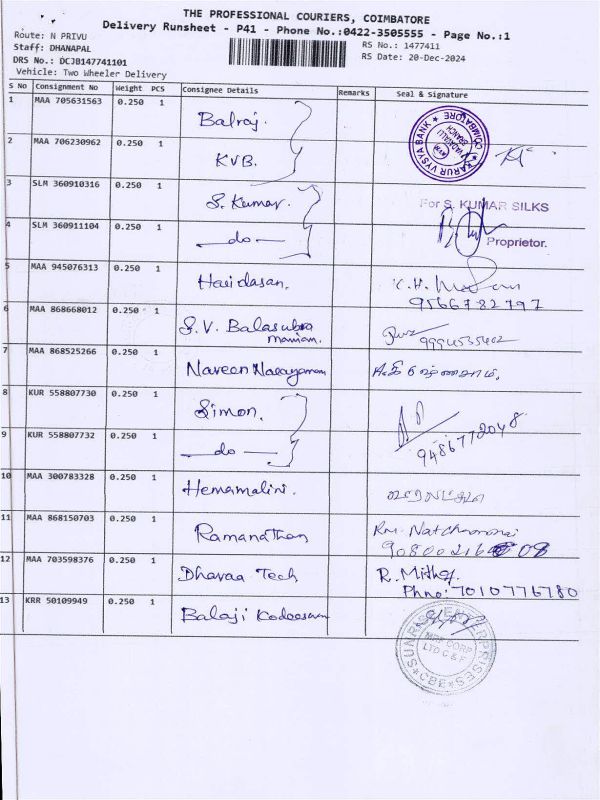 THE PROFESSIONAL COURIERS, COIMBATORE
Delivery Runsheet - P41 - Phone No.:0422-3505555 - Page No.:1
Route: N PRIVU
RS No.: 1477411
Staff: DHANAPAL
RS Date: 20-Dec-2024
DRS No.: DCJB147741101
Vehicle: Two Wheeler Delivery
S No Consignment No Weight PCS Consignee Details Remarks Seal & Signature
1 MAA 705631563 0.250 1 Balraj.
KARUR VYSYA BANK COIMBATORE
VADAVALLI BRANCH
2 MAA 706230962 0.250 1 KVB.
3 SLM 360910316 0.250 1 S. Kumar.
For S. KUMAR SILKS
4 SLM 360911104 0.250 1 — do —
Proprietor.
5 MAA 945076313 0.250 1 Haridasan.
9566782797
6 MAA 868668012 0.250 1 S. V. Balasubra
manian.
7 MAA 868525266 0.250 1 Naveen Narayanan
8 KUR 558807730 0.250 1 Simon.
9486772048
9 KUR 558807732 0.250 1 — do —
10 MAA 300783328 0.250 1 Hemamalini.
11 MAA 868150703 0.250 1 Ramanathan
RM. Natchammai
12 MAA 703598376 0.250 1 Dhavaa Tech
R. Mithu.
Phno: 7010776780
13 KRR 50109949 0.250 1 Balaji Kodeeswan
SUNRISE ENTERPRISES
MRF CORP
LTD C & F
CBE